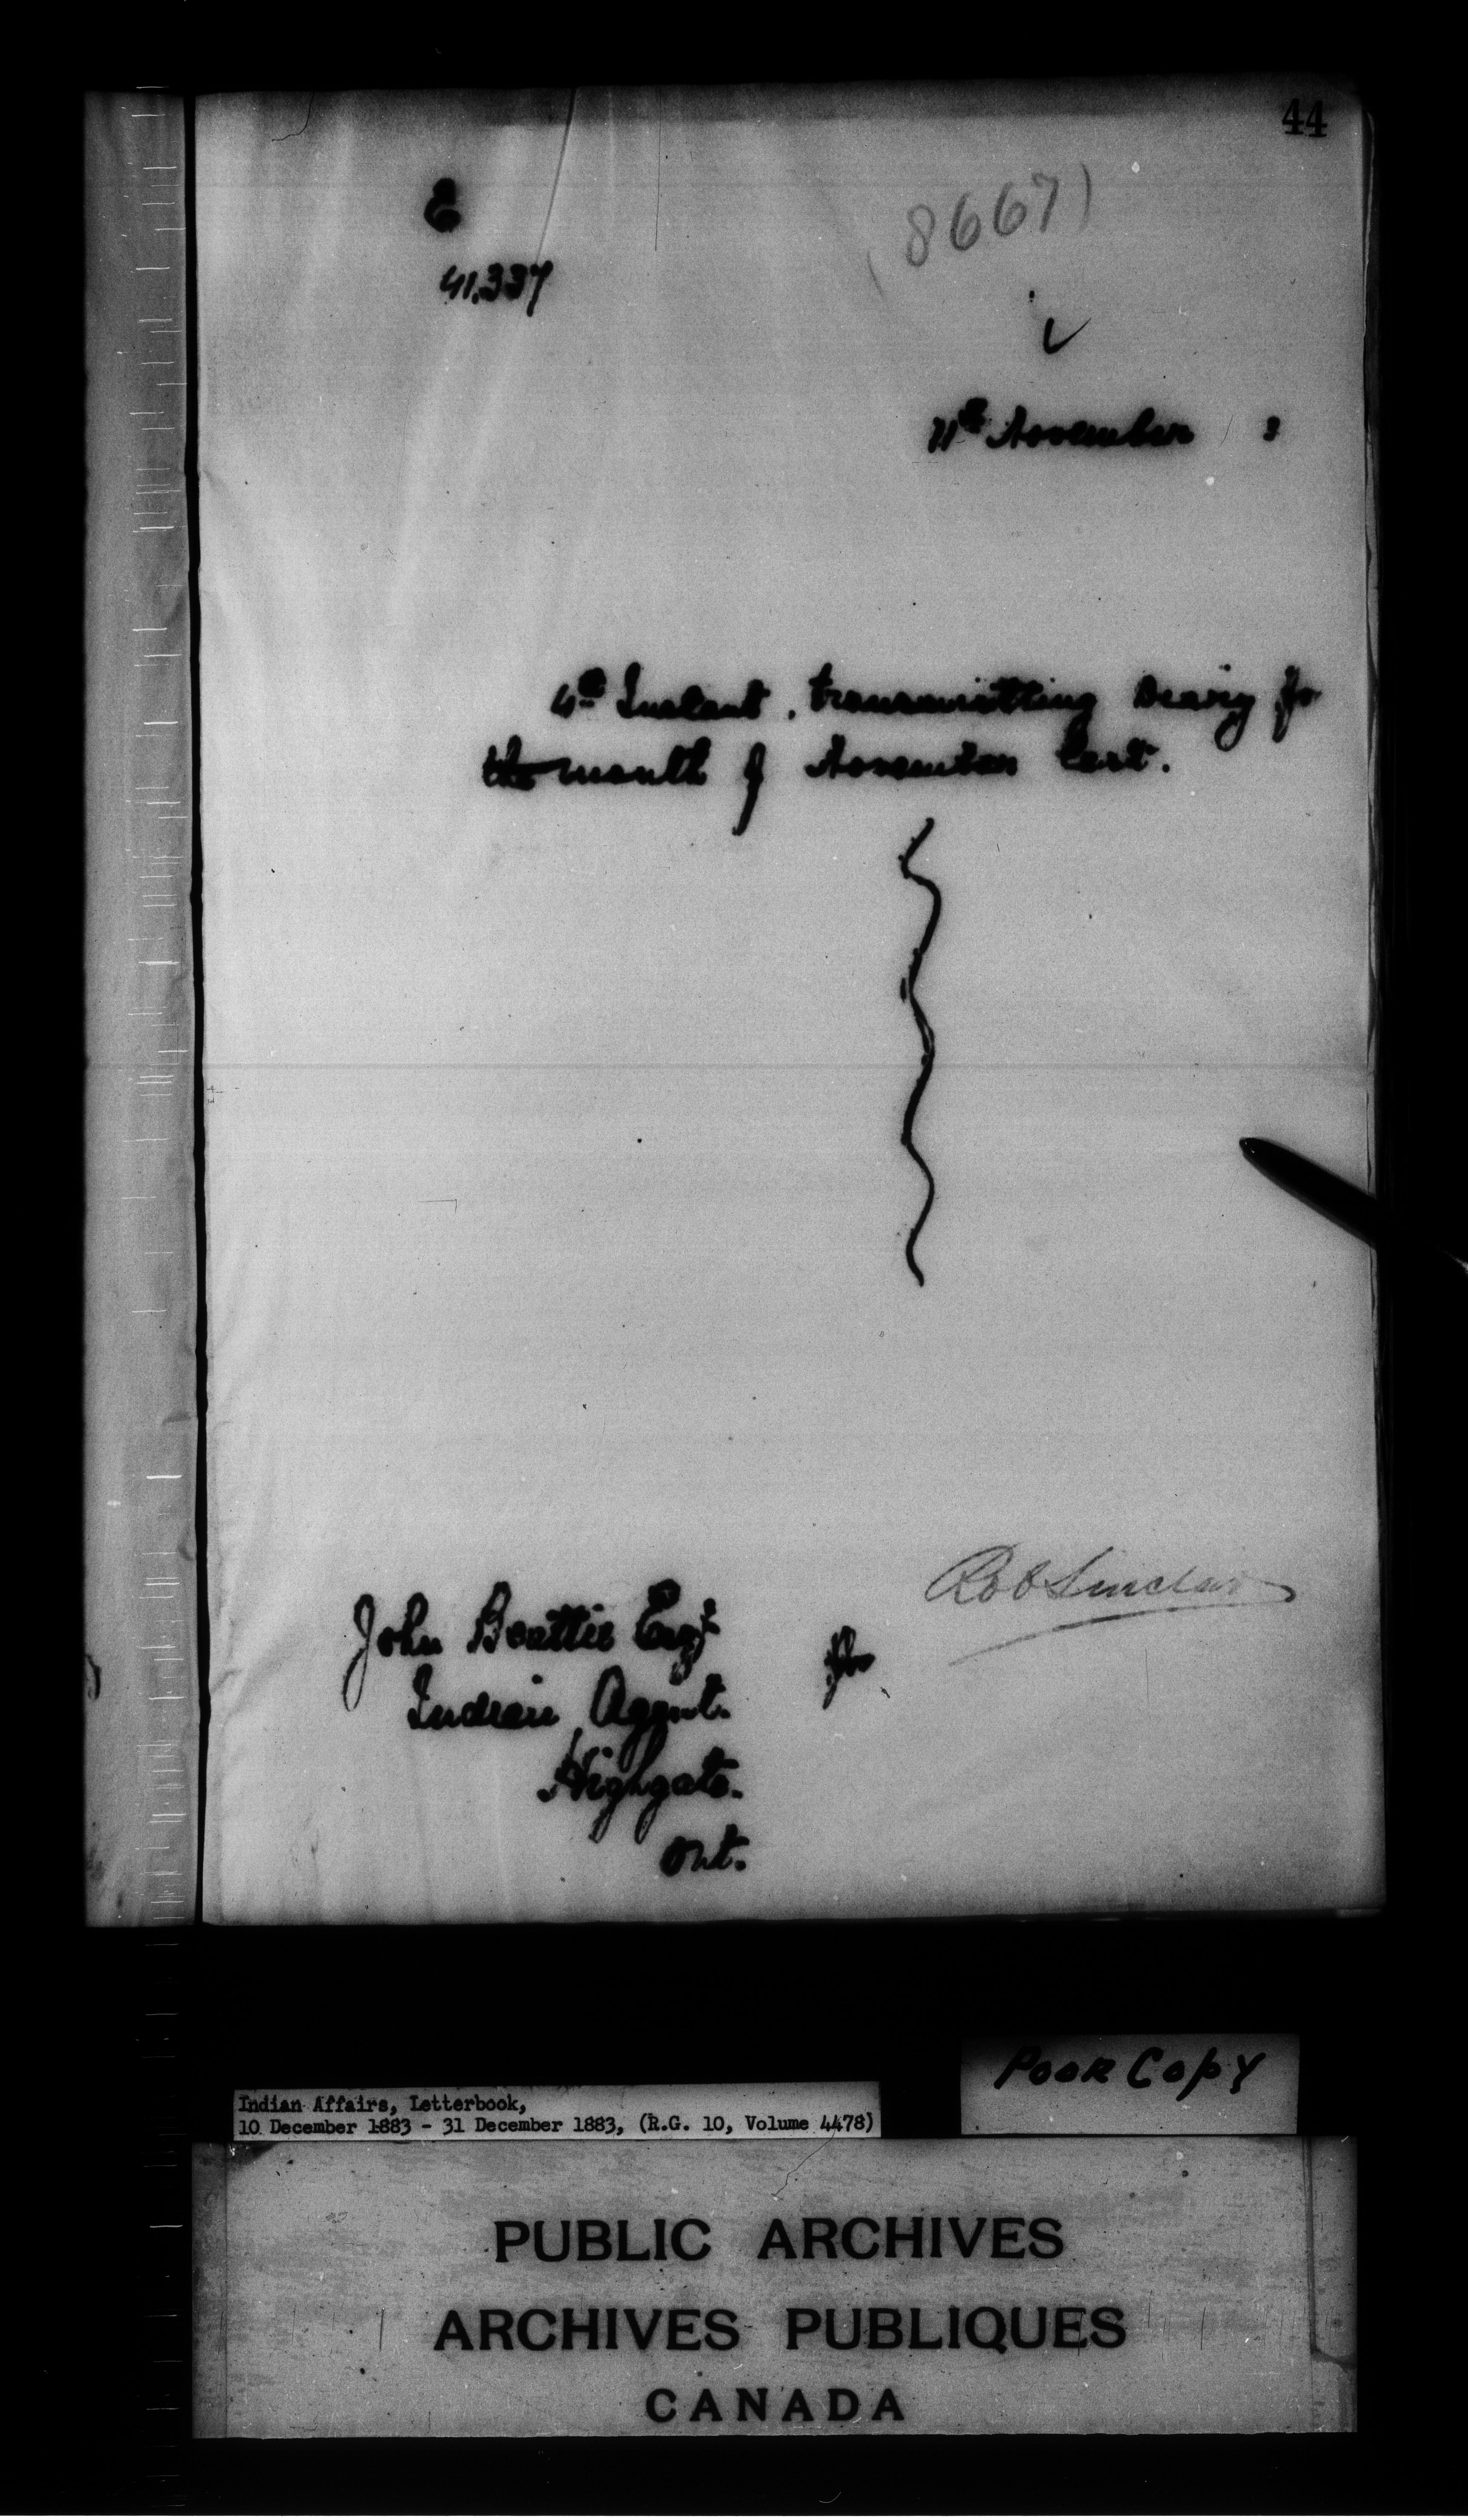 44
E
(8667)
41.337
11th November 3
4th Instant, transmitting Diary for
the month of November last.
Rob Sinclair
John Beattie Esqr
for
Indian Agent.
Highgate.
Ont.
Poor Copy
Indian Affairs, Letterbook,
10 December 1883 - 31 December 1883, (R.G. 10, Volume 4478)
PUBLIC ARCHIVES
ARCHIVES PUBLIQUES
CANADA